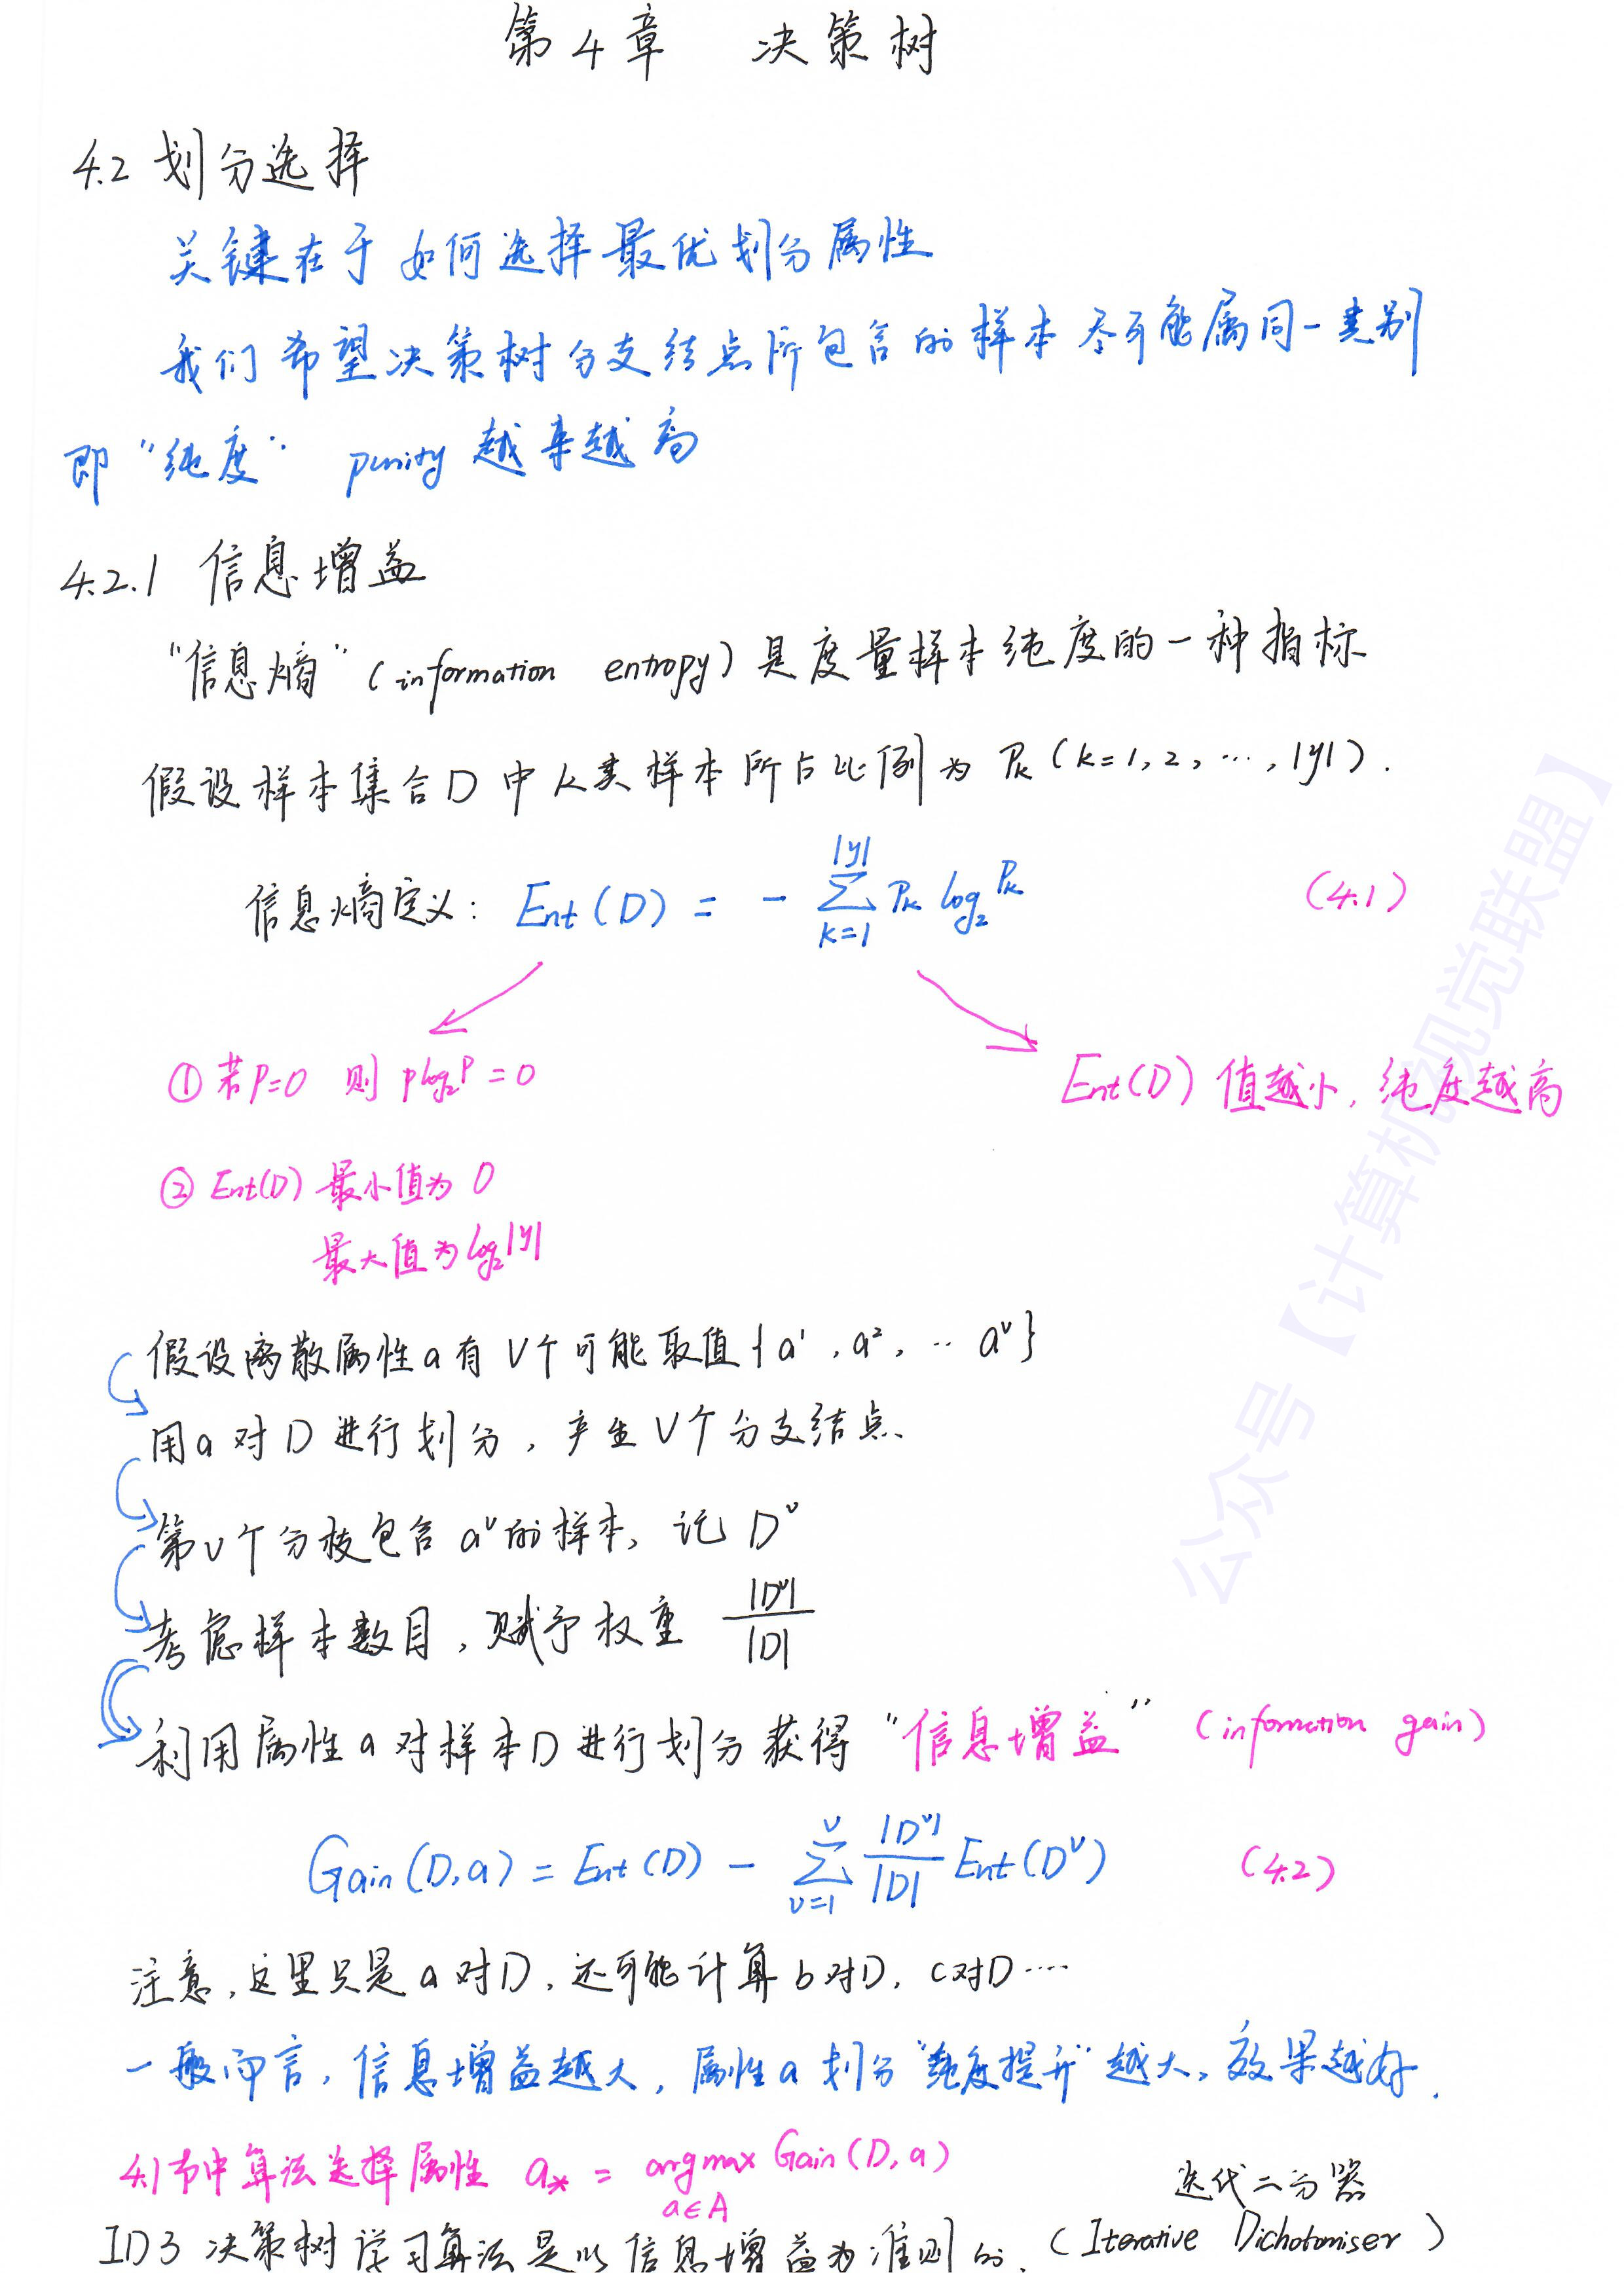 第4章 决策树
4.2 划分选择
关键在于如何选择最优划分属性
我们希望决策树分支结点所包含的样本尽可能属同一类别
即“纯度” purity 越来越高
4.2.1 信息增益
“信息熵”(information entropy)是度量样本纯度的一种指标
假设样本集合D中k类样本所占比例为 Pk (k=1, 2, …, |y|).
信息熵定义: Ent(D) = - ∑_{k=1}^{|y|} Pk log₂Pk (4.1)
① 若P=0 则 Plog₂P = 0
Ent(D) 值越小, 纯度越高
② Ent(D) 最小值为 0
最大值为 log₂|y|
假设离散属性a有V个可能取值{a¹, a², … aᵛ}
用a对D进行划分, 产生V个分支结点.
第v个分枝包含aᵛ的样本, 记 Dᵛ
考虑样本数目, 赋予权重 |Dᵛ|/|D|
利用属性a对样本D进行划分获得“信息增益” (information gain)
Gain(D,a) = Ent(D) - ∑_{v=1}^{V} |Dᵛ|/|D| Ent(Dᵛ) (4.2)
注意, 这里只是a对D, 还可能计算b对D, c对D …
一般而言, 信息增益越大, 属性a划分“纯度提升”越大, 效果越好.
4.1节中算法选择属性 a* = argmax_{a∈A} Gain(D,a)
迭代二分器
ID3 决策树学习算法是以信息增益为准则的. (Iterative Dichotomiser)
公众号【计算机视觉联盟】